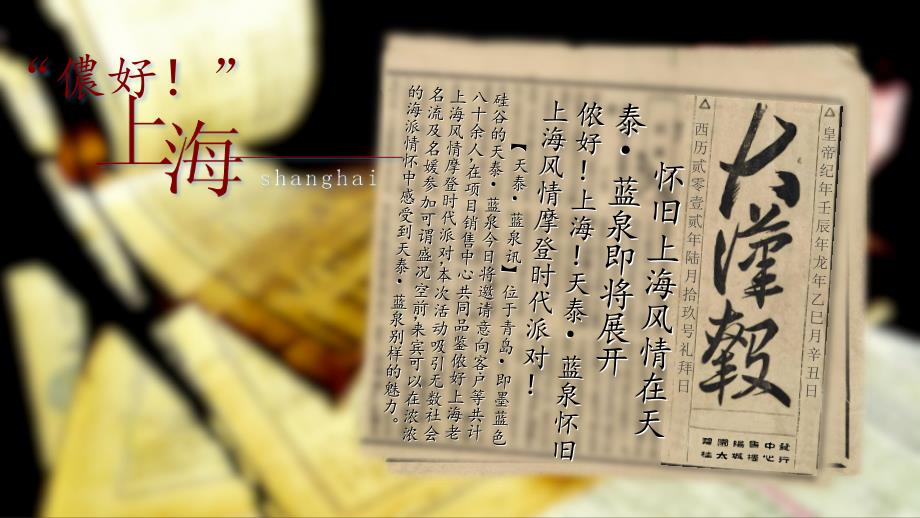 “儂好！”
上海
shanghai
△皇帝纪年壬辰年龙年乙巳月辛丑日
大漢報
△西历贰零壹贰年陆月拾玖号礼拜日
怀旧上海风情在天
泰·蓝泉即将展开
侬好！上海！天泰·蓝泉怀旧
上海风情摩登时代派对！
【天泰·蓝泉讯】位于青岛·即墨蓝色
硅谷的天泰·蓝泉今日将邀请意向客户等共计
八十余人,在项目销售中心共同品鉴侬好上海老
上海风情摩登时代派对,本次活动吸引无数社会
名流及名媛参加可谓盛况空前,来宾可以在浓浓
的海派情怀中感受到天泰·蓝泉别样的魅力。